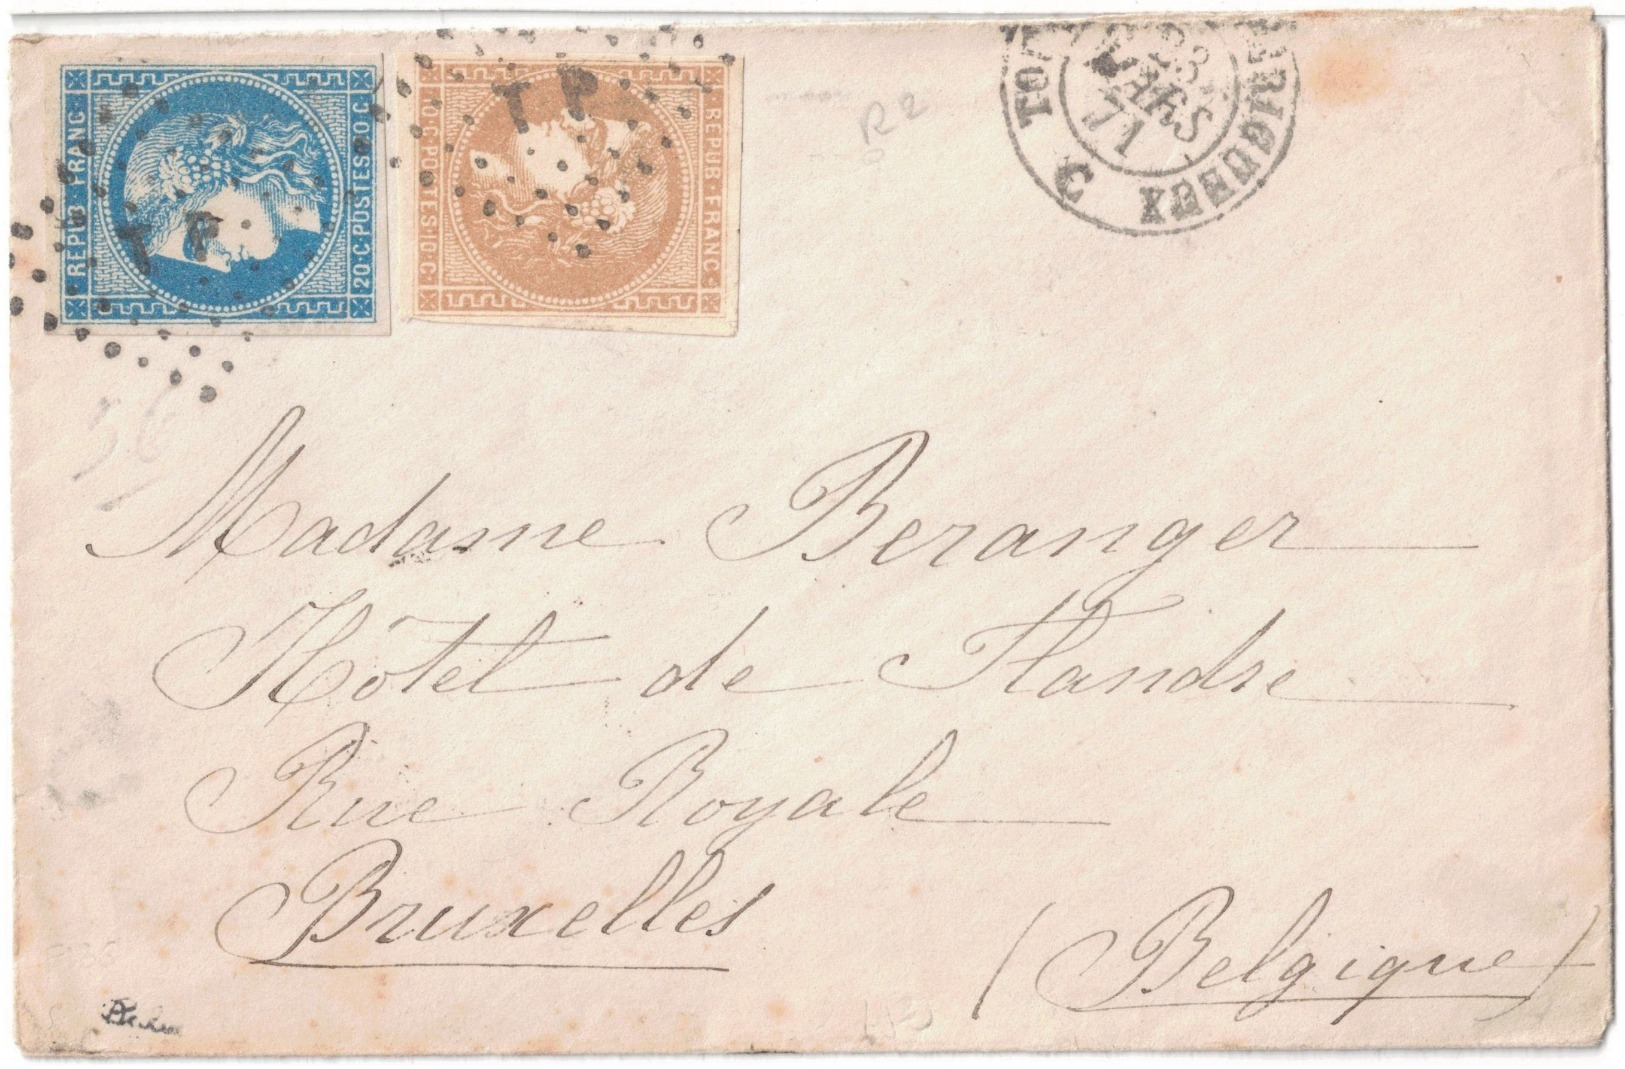 REPUB FRANC
20·C·POSTES·20·C
T P
REPUB·FRANC
10·C·POSTES·10·C·
T P
R2
TO
C
ERIGUEUX
23
MARS
71
56
Madame Beranger
Hôtel de Flandre
Rue Royale
Bruxelles
(Belgique)